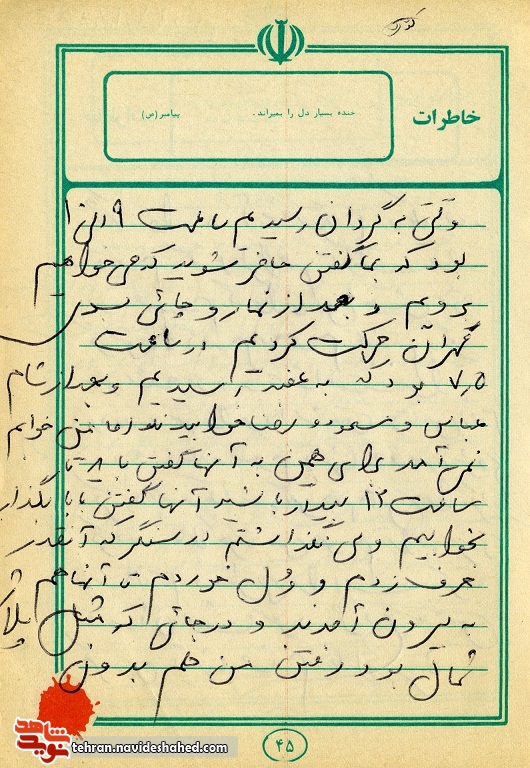 خاطرات
خنده بسیار دل را بمیراند. پیامبر(ص)
وقتی به گردان رسیدیم ساعت ۹ الی ۱۰
بود که بما گفتن حاضر شوید که می خواهیم
برویم و بعد از نماز و چائی بسوی
حرکت کردیم در ساعت
۷٫۵ بود که به عقبه رسیدیم و بعد از شام
عباس و مسعود و رضا خوابیدند اما من خوابم
نمی آمد برای همین به آنها گفتم باید تا
ساعت ۱۲ بیدار باشید آنها گفتن بابا بگذار
بخوابیم ولی نگذاشتم در سنگر که آنقدر
حرف زدم و وول خوردم تا آنها هم
به بیرون آمدند و در جائی که مثل پلاژ
شمال بود رفتن من هم بدون
۴۵
شاهد
نوید
tehran.navideshahed.com